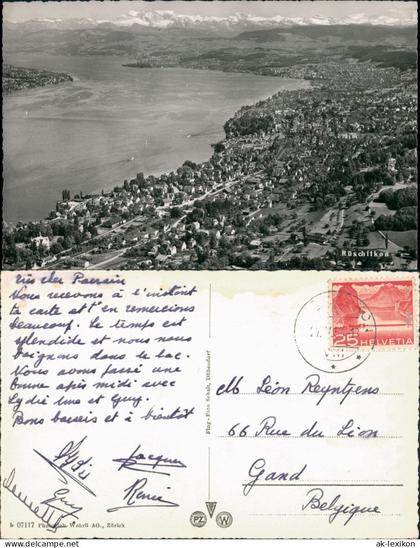 Rüschlikon
très cher Parrain
Nous recevons à l'instant
ta carte et t'en remercions
beaucoup. Le temps est
splendide et nous nous
baignons dans le lac.
Nous avons passé une
bonne après midi avec
Lydie Ime et Guy.
Bons baisers et à bientôt
Lydie
Jacques
Guy
Renée
b 07117 Photogloh-Wehrli AG., Zürich
Flug-Foto Schulz, Dübendorf
PZ W
25 HELVETIA
VIII
M Léon Reyntjens
66 Rue St. Léon,
Gand
Belgique
www.ak-lexikon.de